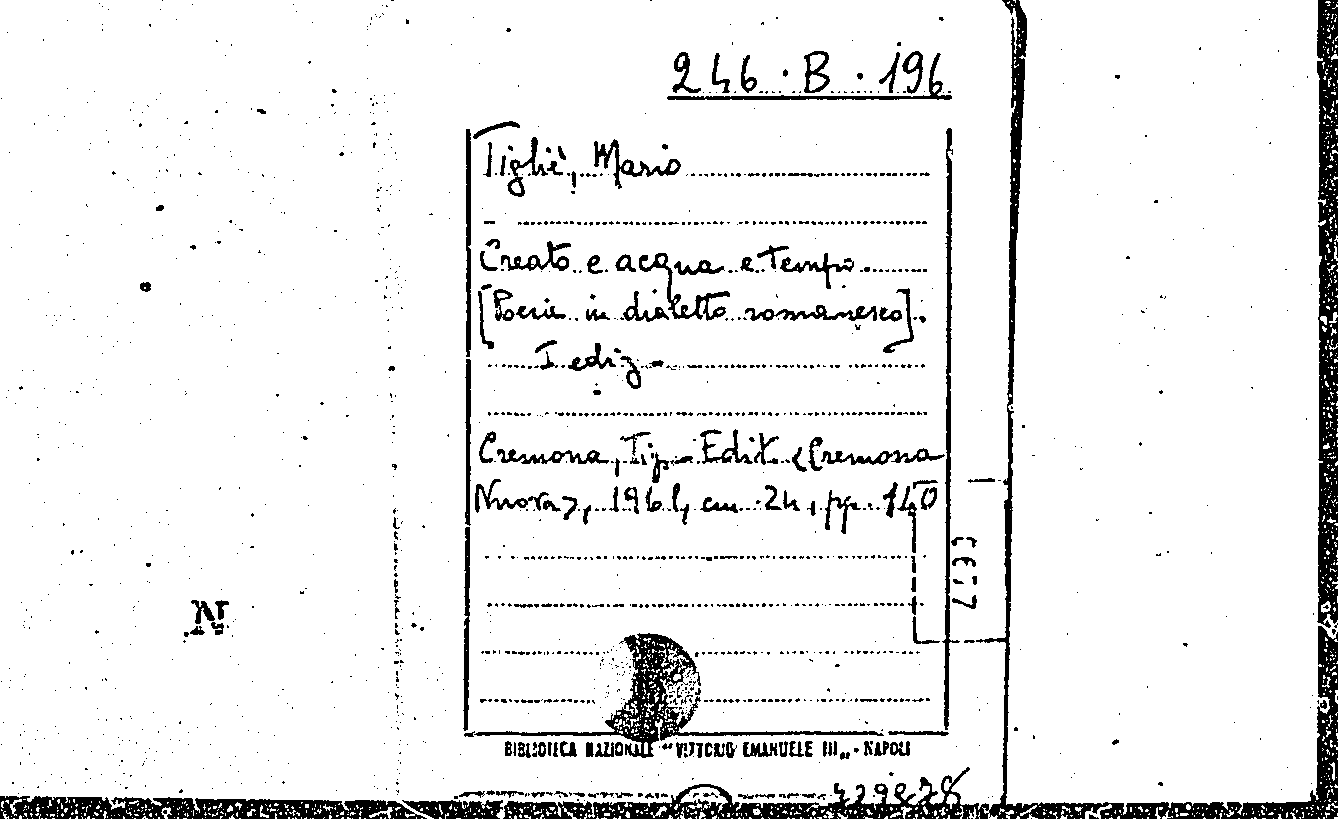 246·B·196
Tigliè, Mario
Creato e acqua e tempo.
[Poesie in dialetto romanesco].
I ediz-
Cremona, Tip.-Edit. <Cremona
Nuova>, 1961, cm 24, pp. 140
N
BIBLIOTECA NAZIONALE "VITTORIO EMANUELE III„ - NAPOLI